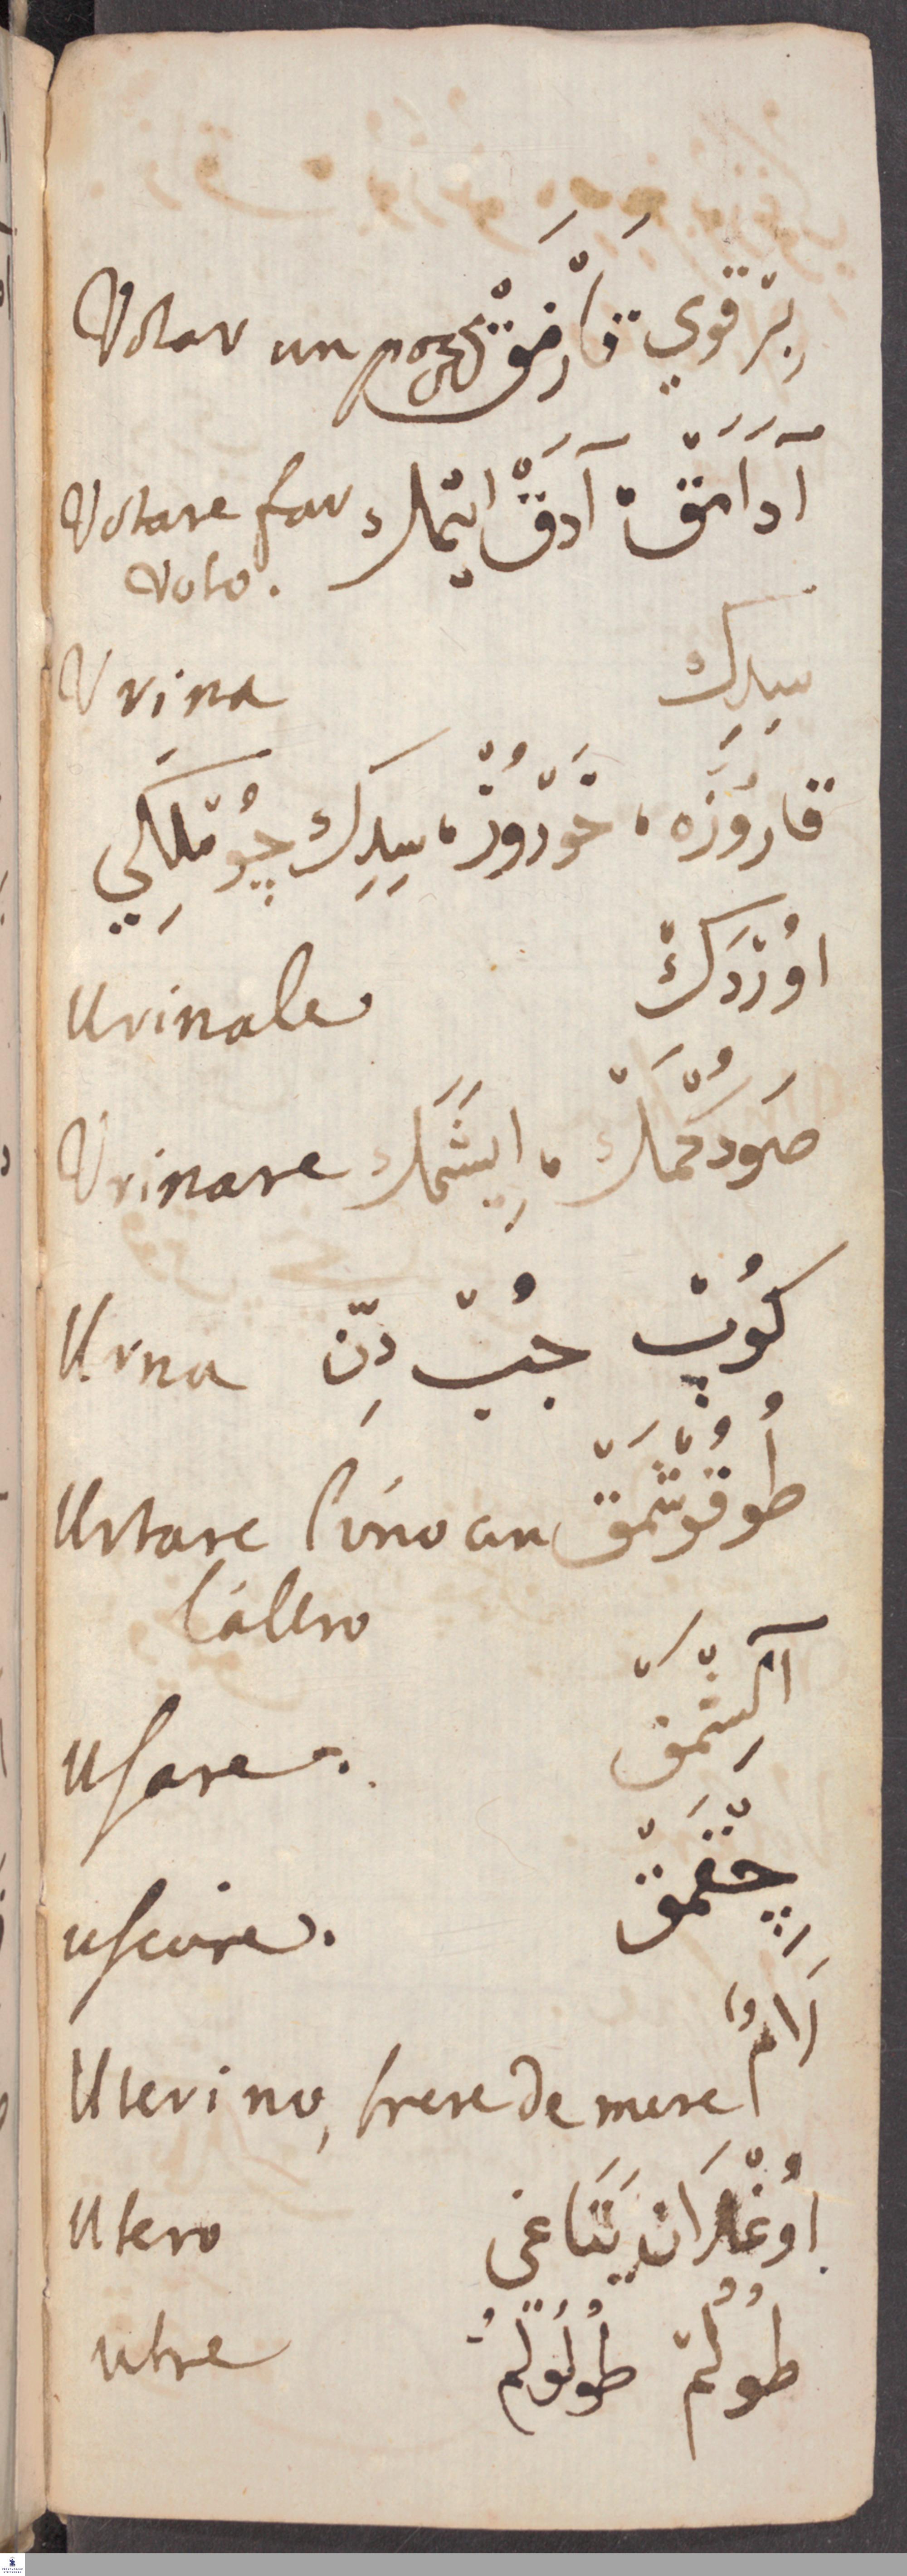 Votar un pozzo بِرْ قوي قَارْمَقْ
Votare far آدَامَقْ آدَقْ ايتمك
Voto.
Vrina سِدِك
قارُوزَه ، خَرْدُوزْ ، سِدِك چُوملكي
Urinale اوُرْدَكْ
Vrinare صودكمَكْ ، اِيشَمَك
Urna كُوپْ جُبْ دِنّ
Urtare l'uno con طُوقُوشْمَقْ
l'altro
Usare. آلِشْمَقْ
uscire. چِقْمَقْ
Uterino, frere de mere لَامٌ
Utero اوُغْلَان يَتَاغي
utre طُولُمْ طُولُوُمْ